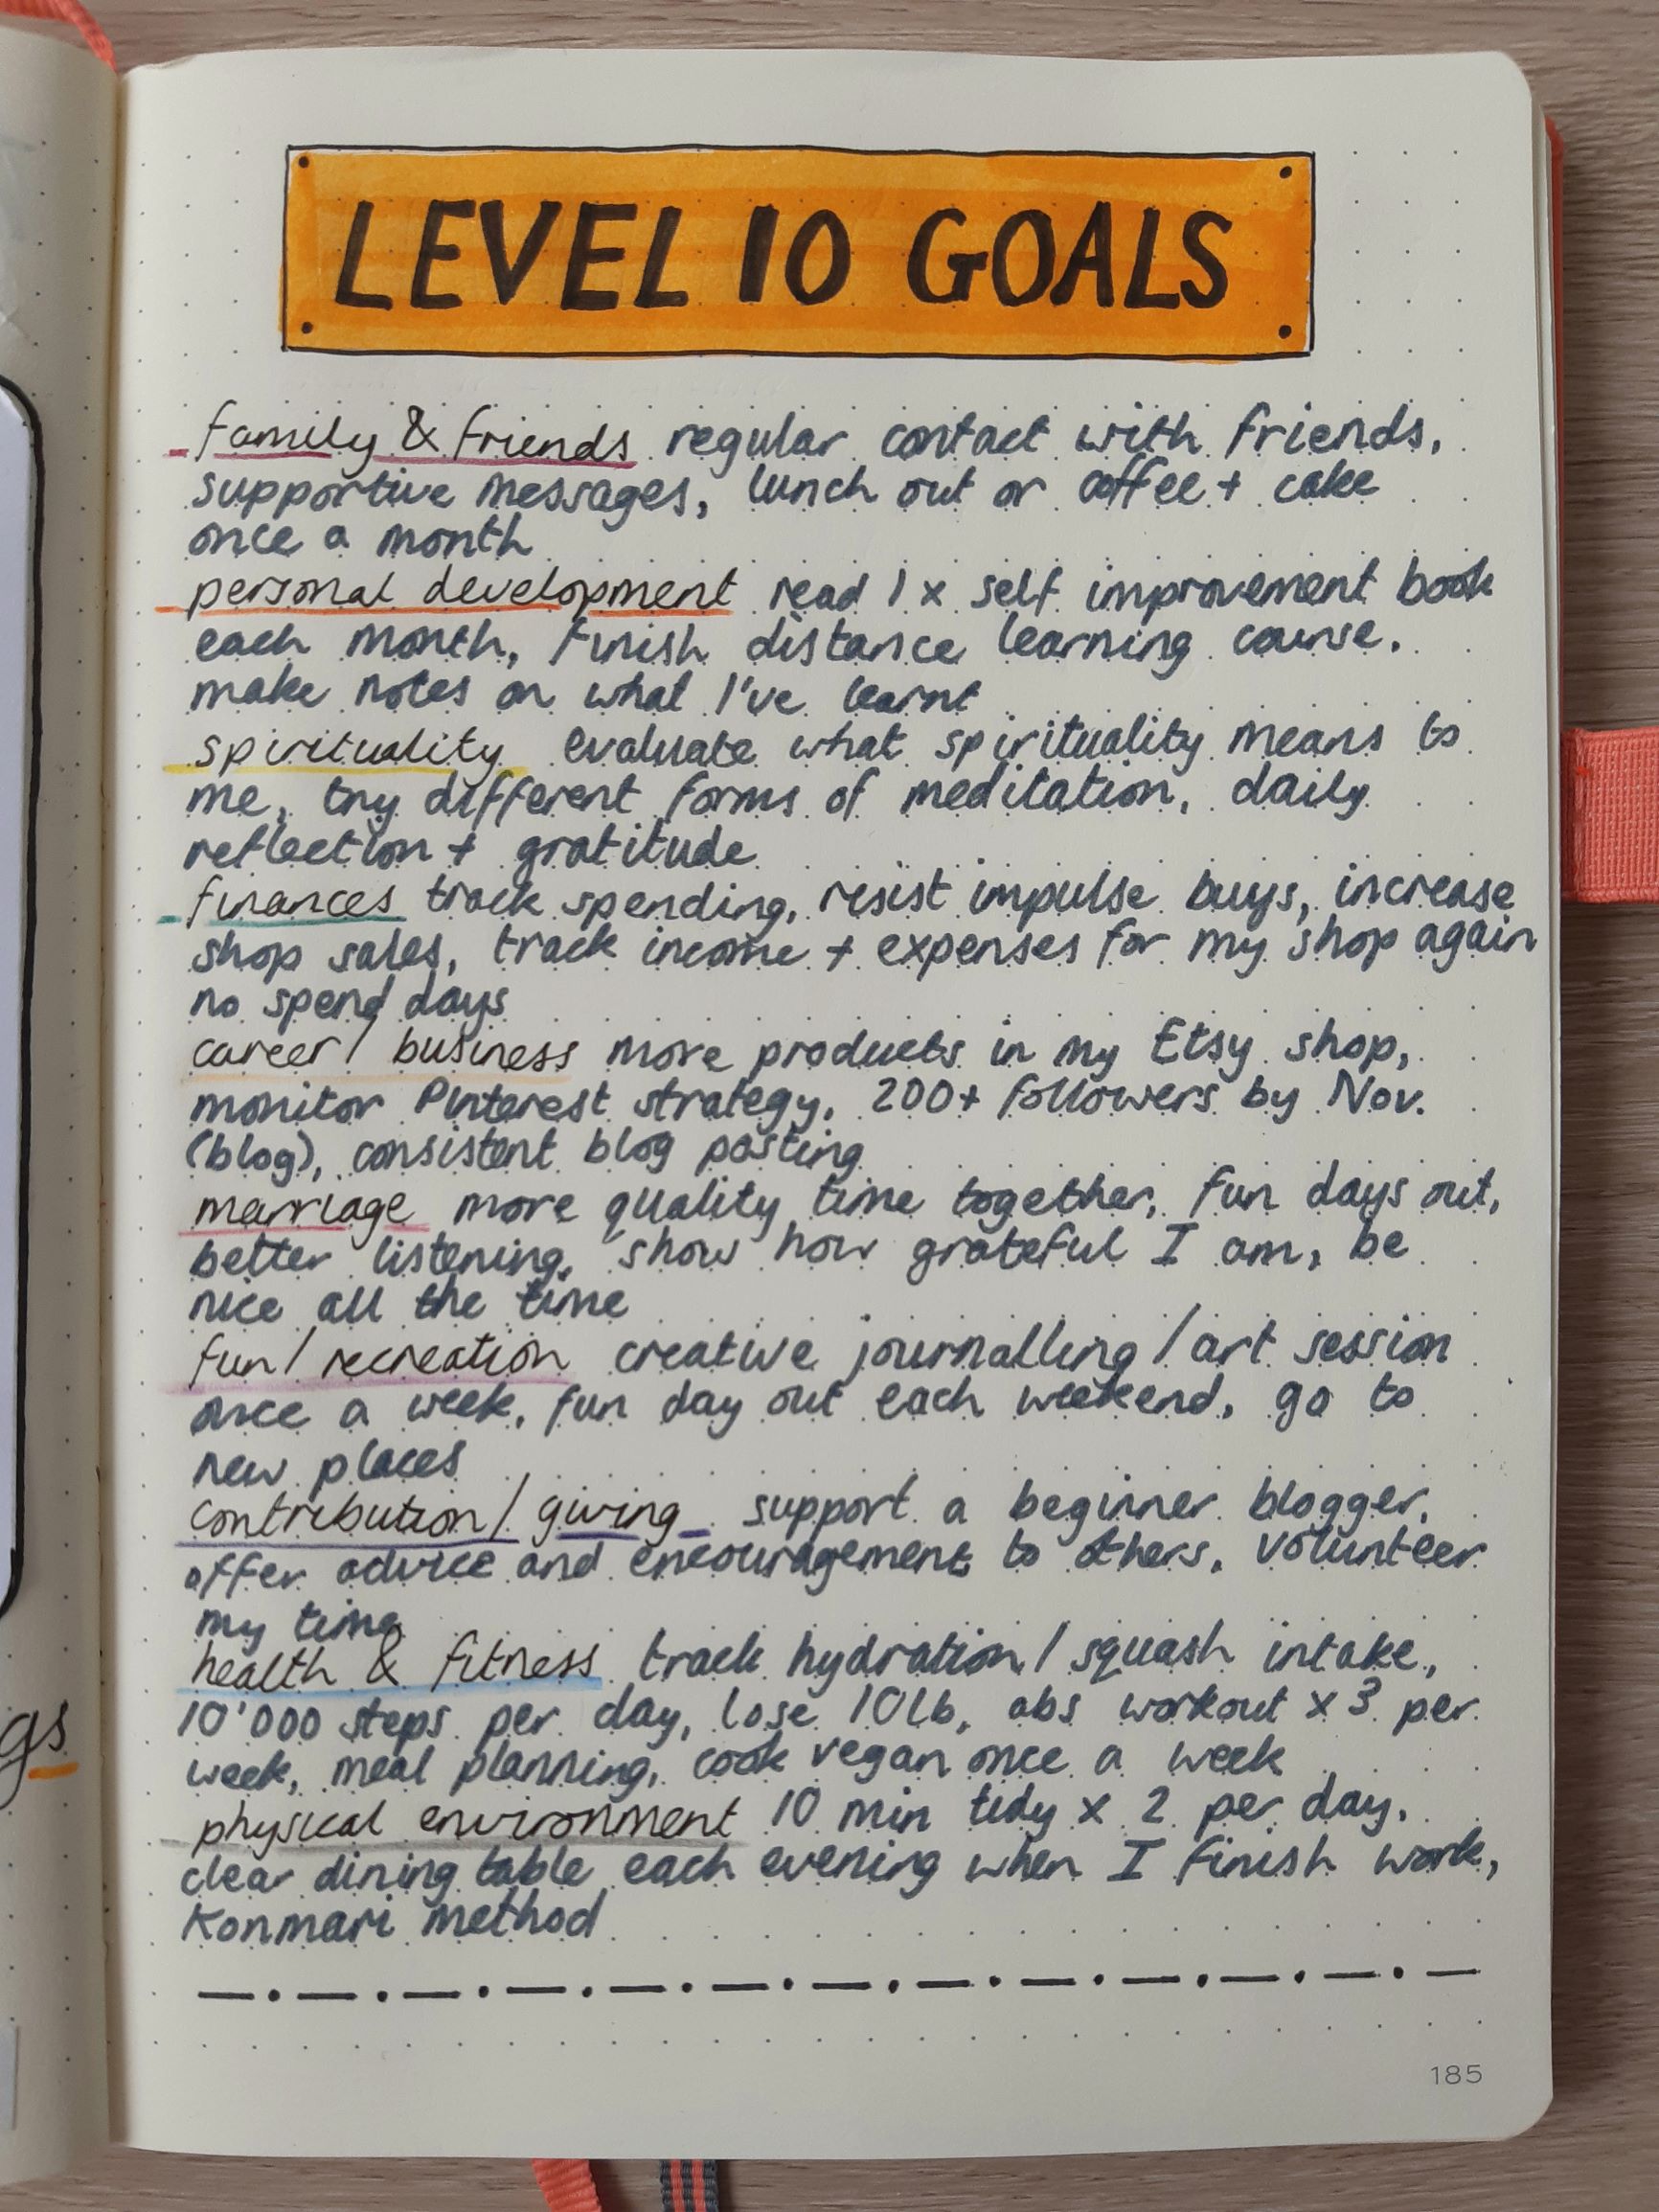 LEVEL 10 GOALS
family & friends regular contact with friends,
supportive messages, lunch out or coffee + cake
once a month
personal development read 1 x self improvement book
each month, finish distance learning course,
make notes on what I've learnt
spirituality evaluate what spirituality means to
me, try different forms of meditation, daily
reflection + gratitude
finances track spending, resist impulse buys, increase
shop sales, track income + expenses for my shop again
no spend days
career / business more products in my Etsy shop,
monitor Pinterest strategy, 200+ followers by Nov.
(blog), consistent blog posting
marriage more quality time together, fun days out,
better listening, show how grateful I am, be
nice all the time
fun / recreation creative journalling / art session
once a week, fun day out each weekend, go to
new places
contribution / giving support a beginner blogger,
offer advice and encouragement to others, volunteer
my time
health & fitness track hydration / squash intake,
10'000 steps per day, lose 10lb, abs workout x 3 per
week, meal planning, cook vegan once a week
physical environment 10 min tidy x 2 per day,
clear dining table each evening when I finish work,
Konmari method
185
gs